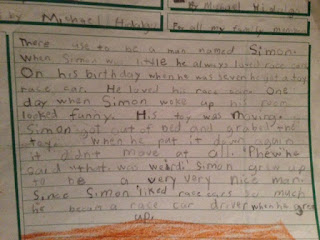 by Michael
By Michael
For all my family
There use to be a man named Simon.
When Simon was little he always loved race cars
On his birthday when he was seven he got a toy
race car. He loved his race car. One
day when Simon woke up his
looked funny. His toy was moving.
Simon got out of bed and grabed the
toy. when he put it down again
it didn't move at all. "Phew" he
said "that was weird." Simon grew up
to be a very very nice man.
Since Simon liked race cars so much
he became a race car driver when he grew
up.